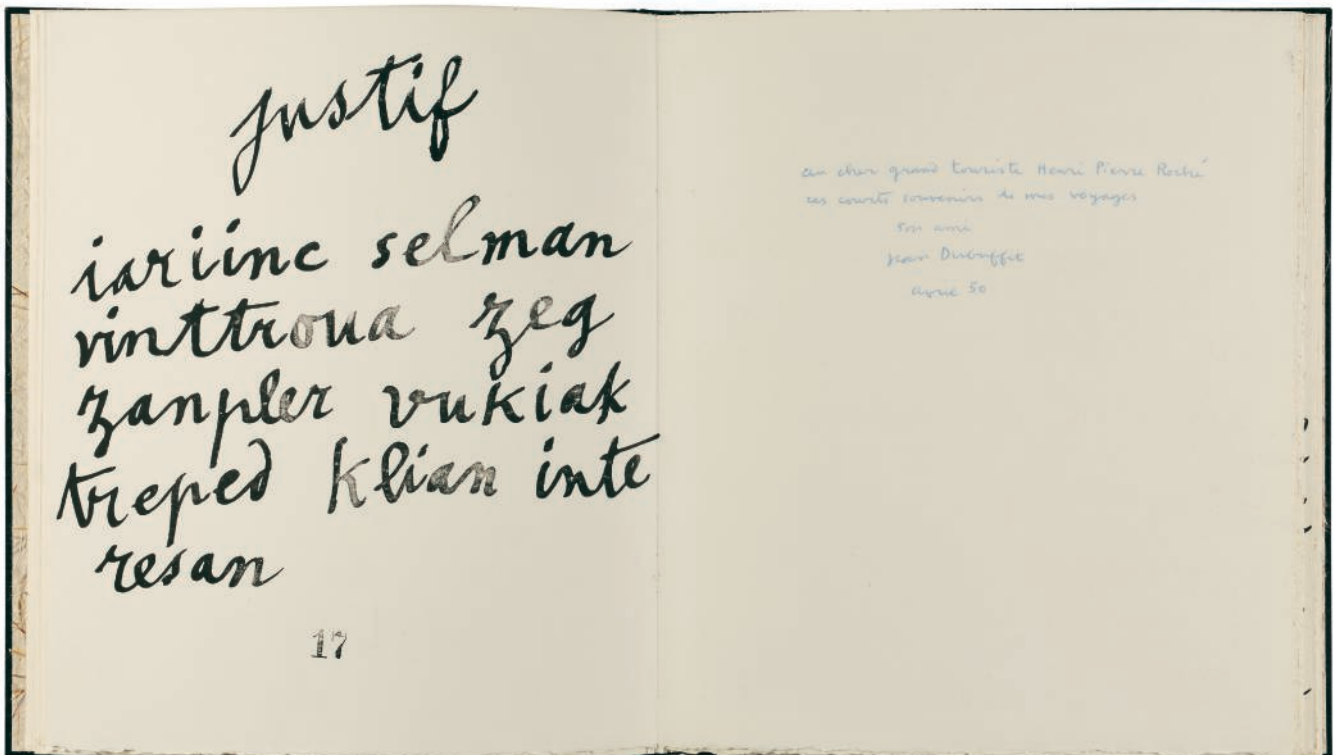 justif
iariinc selman
vinttroua zeg
zanpler vukiak
treped klian inte
resan
17
au cher grand touriste Henri Pierre Roché
ces courts souvenirs de mes voyages
son ami
Jean Dubuffet
avril 50